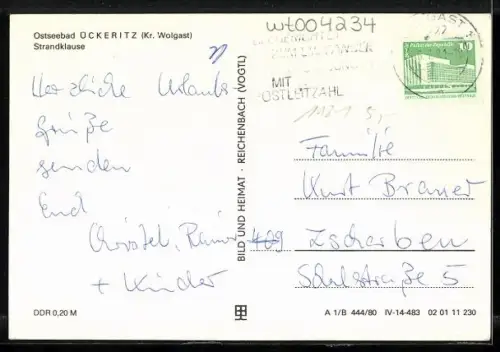 Ostseebad ÜCKERITZ (Kr. Wolgast)
Strandklause
wt004234
MIT
POSTLEITZAHL
10
Herzliche Urlaubs-
grüße
senden
Euch
Christel, Rainer
+ Kinder
BILD UND HEIMAT · REICHENBACH (VOGTL)
Familie
Kurt Brauer
409 Zscherben
Schulstraße 5
DDR 0,20 M
A 1/B 444/80 IV-14-483 02 01 11 230